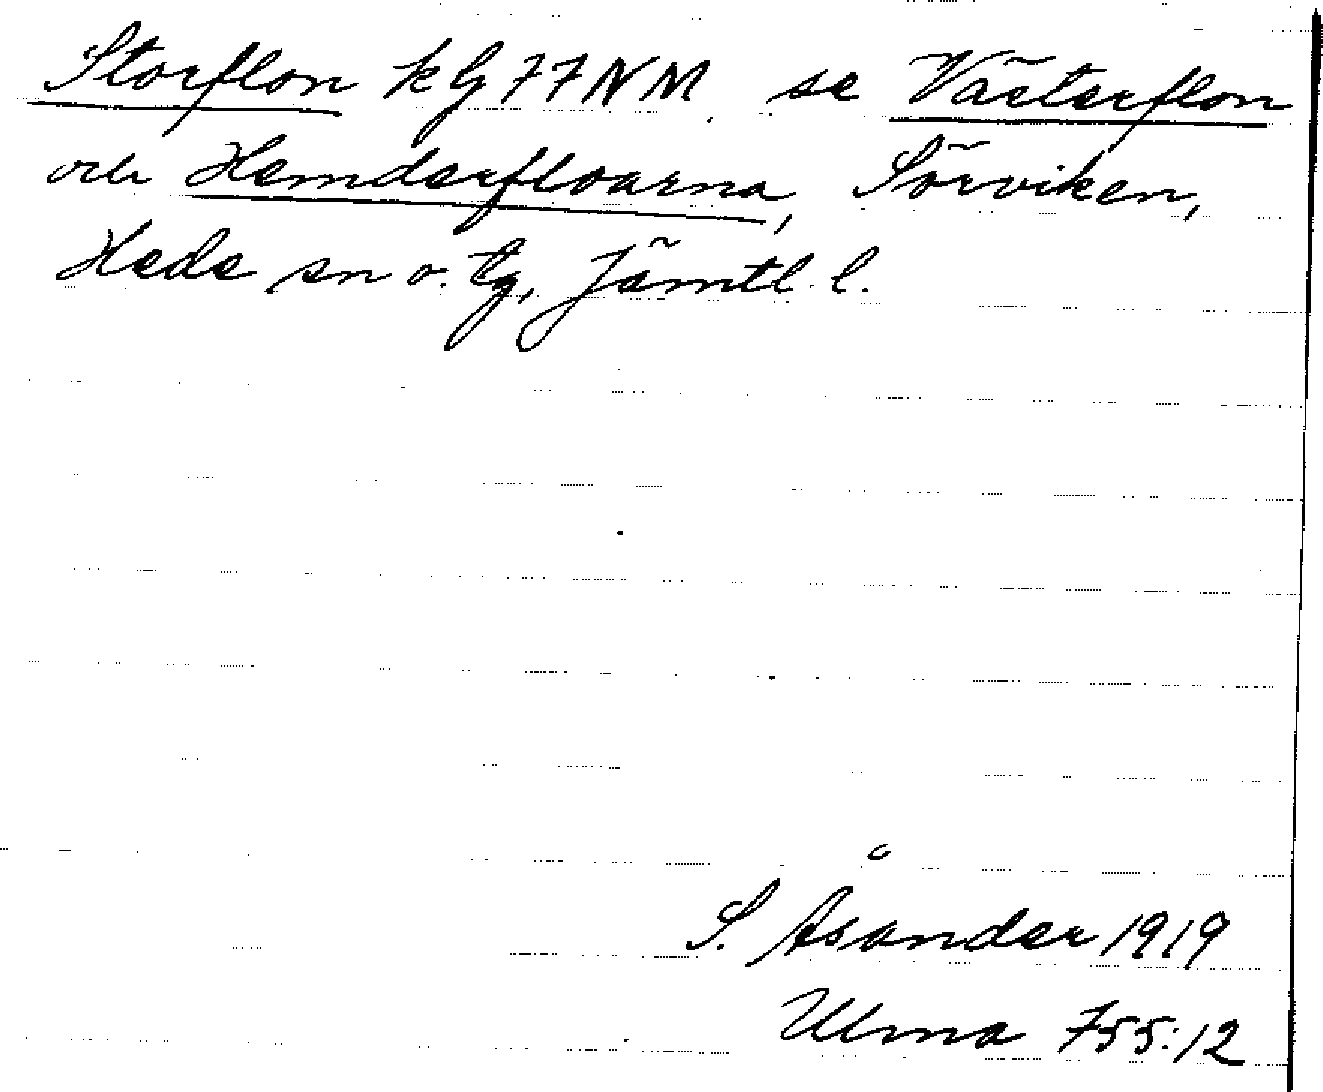 Storflon klg 77NM. se Västerflon
och Hemderfloarna, Sörviken,
Hede sn o. tg, Jämtl. l.
S. Åsander 1919
Ulma 755:12